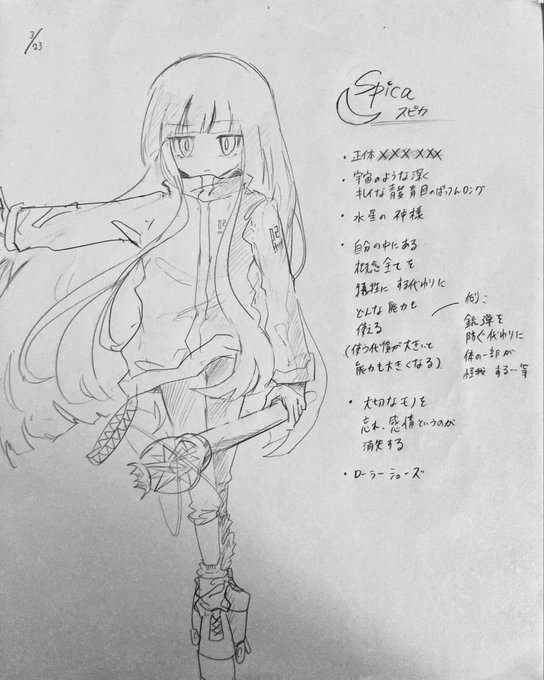 3/23
Spica
スピカ
・正体 XXX XXX
・宇宙のような深く
キレイな青髪青目のぱっつんロング
・水星の神様
・自分の中にある
概念全てを
犠牲にする代わりに
どんな能力も
使える
(使う代償が大きいて
能力も大きくなる)
例):
銃弾を
防ぐ代わりに
体の一部が
する…等
・大切なモノを
忘れ、感情というのが
消失する
・ローラーシューズ
02